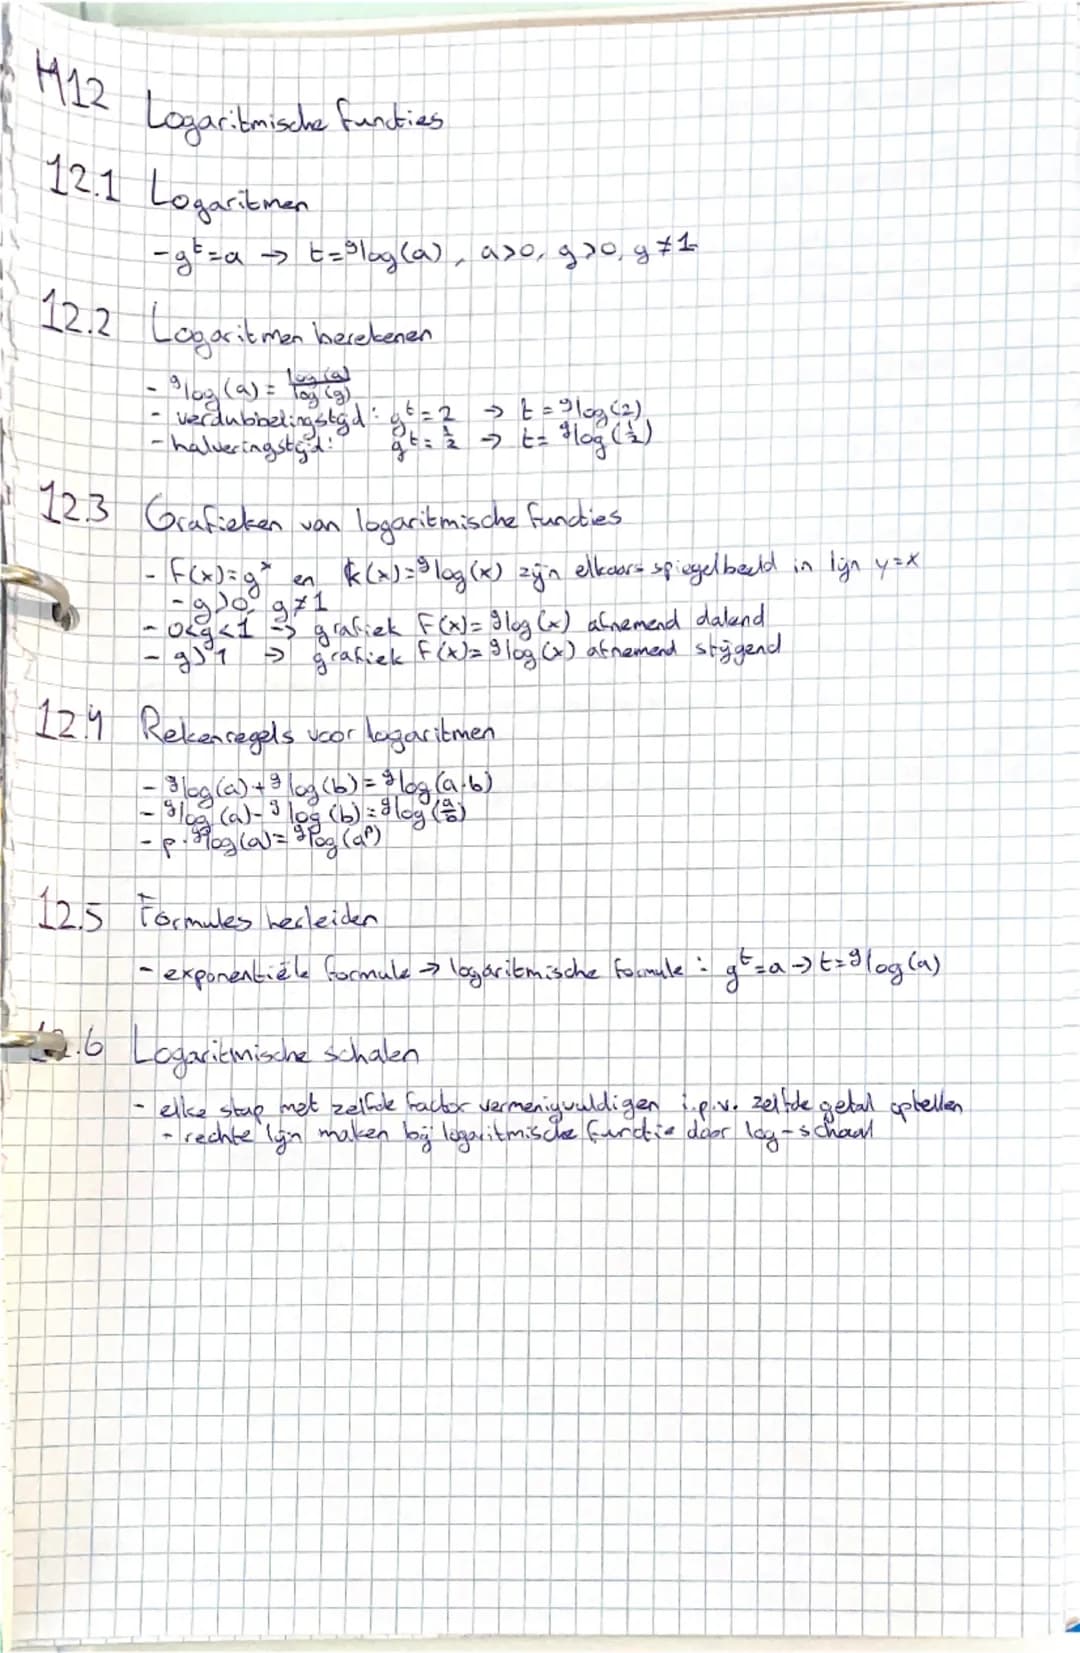 H12 Logaritmische functies
12.1 Logaritmen
- gᵗ=a → t=ᵍlog(a), a>0, g>0, g≠1
12.2 Logaritmen berekenen
- ᵍlog(a) = log(a)/log(g)
- verdubbelingstijd: gᵗ=2 → t=ᵍlog(2)
- halveringstijd: gᵗ=½ → t=ᵍlog(½)
12.3 Grafieken van logaritmische functies
- f(x)=gˣ en k(x)=ᵍlog(x) zijn elkaars spiegelbeeld in lijn y=x
- g>0, g≠1
- 0<g<1 → grafiek f(x)=ᵍlog(x) afnemend dalend
- g>1 → grafiek f(x)=ᵍlog(x) afnemend stijgend
12.4 Rekenregels voor logaritmen
- ᵍlog(a)+ᵍlog(b)=ᵍlog(a·b)
- ᵍlog(a)-ᵍlog(b)=ᵍlog(a/b)
- p·ᵍlog(a)=ᵍlog(aᵖ)
12.5 Formules herleiden
- exponentiële formule → logaritmische formule: gᵗ=a → t=ᵍlog(a)
12.6 Logaritmische schalen
- elke stap met zelfde factor vermenigvuldigen i.p.v. zelfde getal optellen
- rechte lijn maken bij logaritmische functie door log-schaal